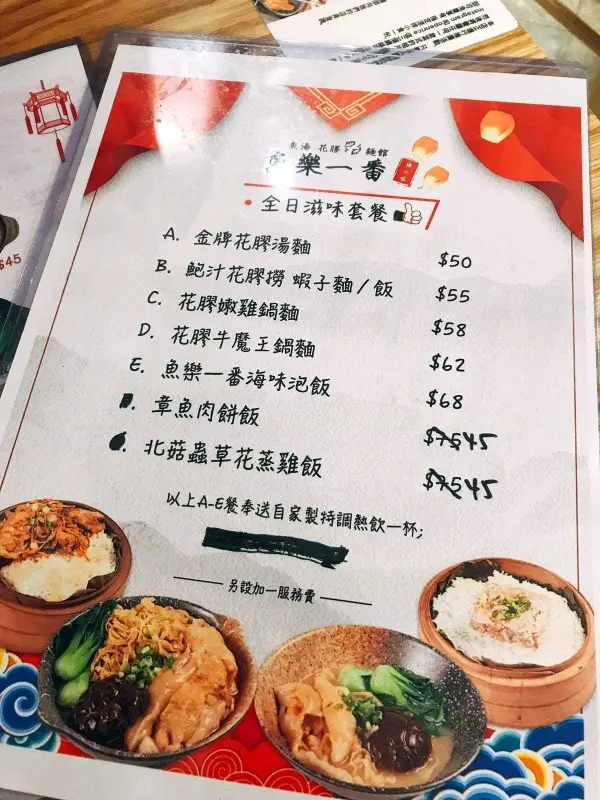 魚湯 花膠 麵館
魚樂一番
全日滋味套餐
A. 金牌花膠湯麵 $50
B. 鮑汁花膠撈 蝦子麵/飯 $55
C. 花膠嫩雞鍋麵 $58
D. 花膠牛魔王鍋麵 $62
E. 魚樂一番海味泡飯 $68
章魚肉餅飯 $75 45
北菇蟲草花蒸雞飯 $75 45
以上A-E餐奉送自家製特調熱飲一杯;
另設加一服務費
$45